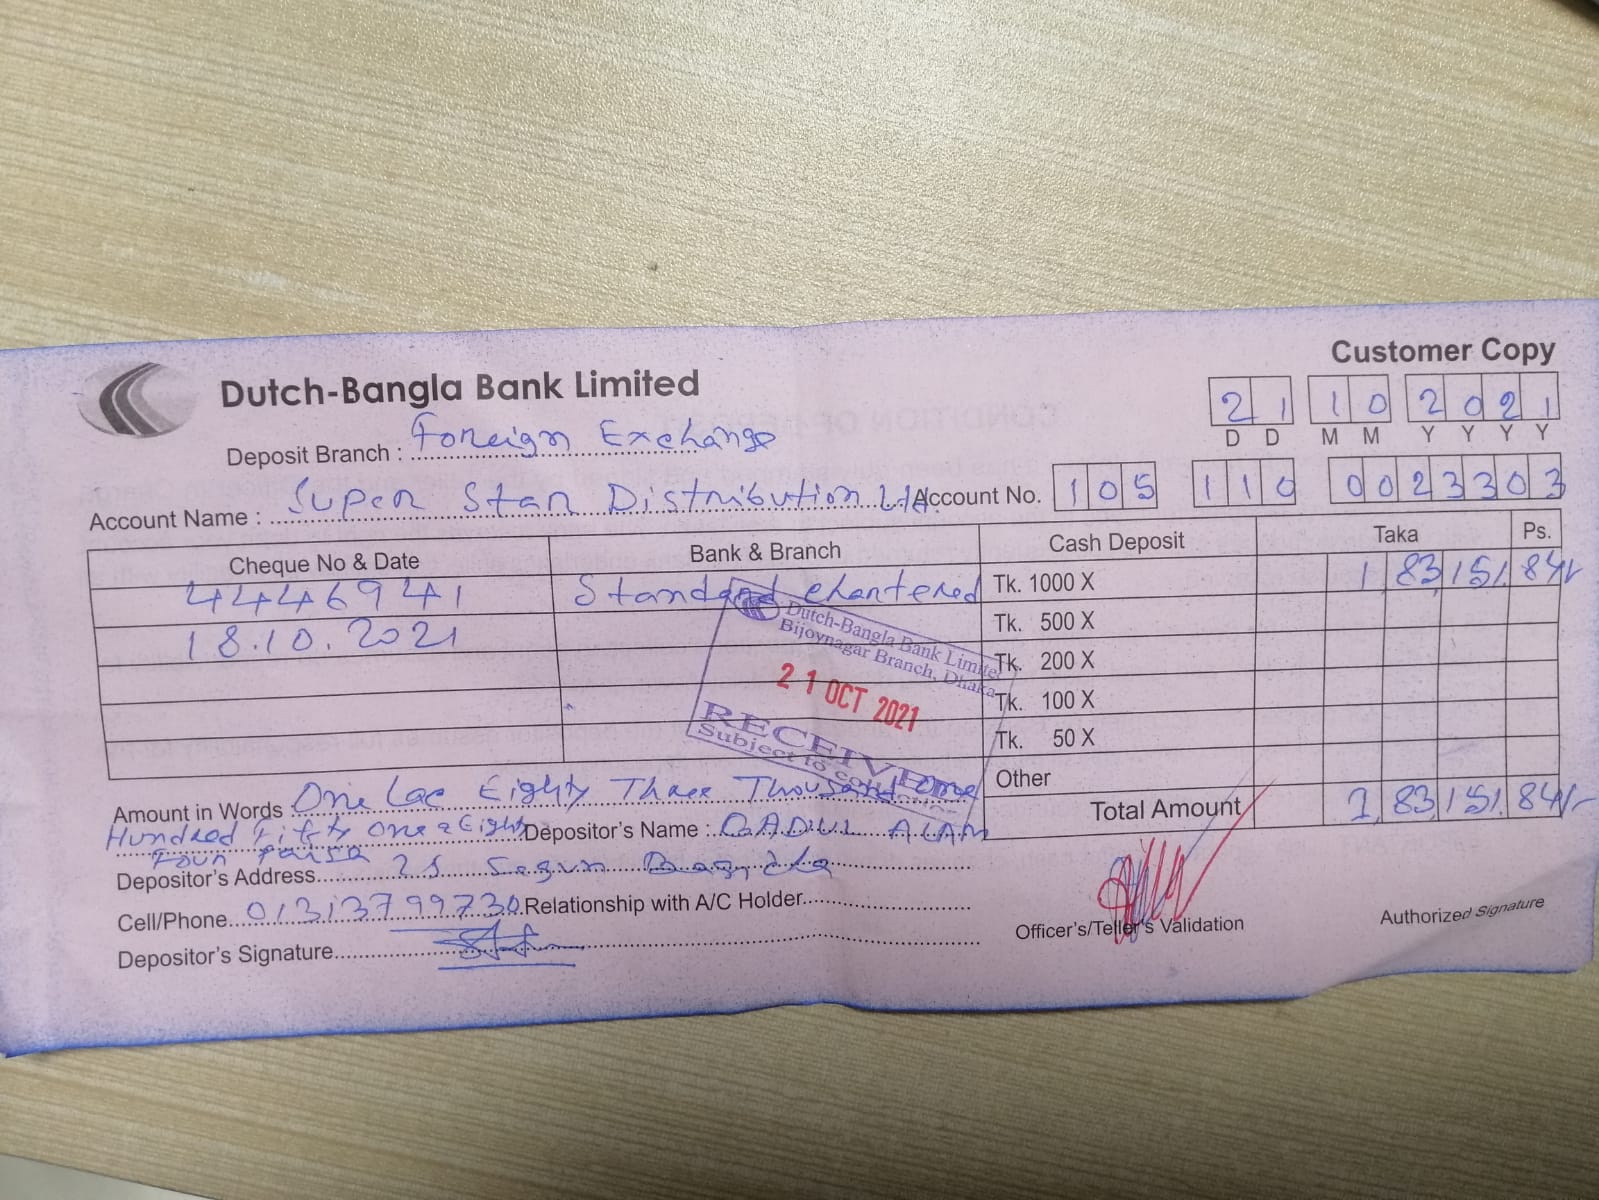 Customer Copy
Dutch-Bangla Bank Limited
21 10 2021
D D M M Y Y Y Y
Deposit Branch : Foreign Exchange
Account Name : Super Star Distribution Ltd. Account No. 105 110 0023303
Cheque No & Date Bank & Branch Cash Deposit Taka Ps.
44469 41 Standard chartered Tk. 1000 X 1,83,151, 84/-
18.10.2021 Tk. 500 X
Dutch-Bangla Bank Limited
Bijoynagar Branch, Dhaka
Tk. 200 X
21 OCT 2021
Tk. 100 X
RECEIVED
Subject to
Tk. 50 X
Other
Amount in Words One Lac Eighty Three Thousand One
Total Amount 1,83,151, 84/-
Hundred Fifty One & Eighty Depositor's Name : ALAM
Four Paisa
Depositor's Address 25 Segun
Cell/Phone 01313799730 Relationship with A/C Holder
Depositor's Signature
Officer's/Teller's Validation
Authorized Signature